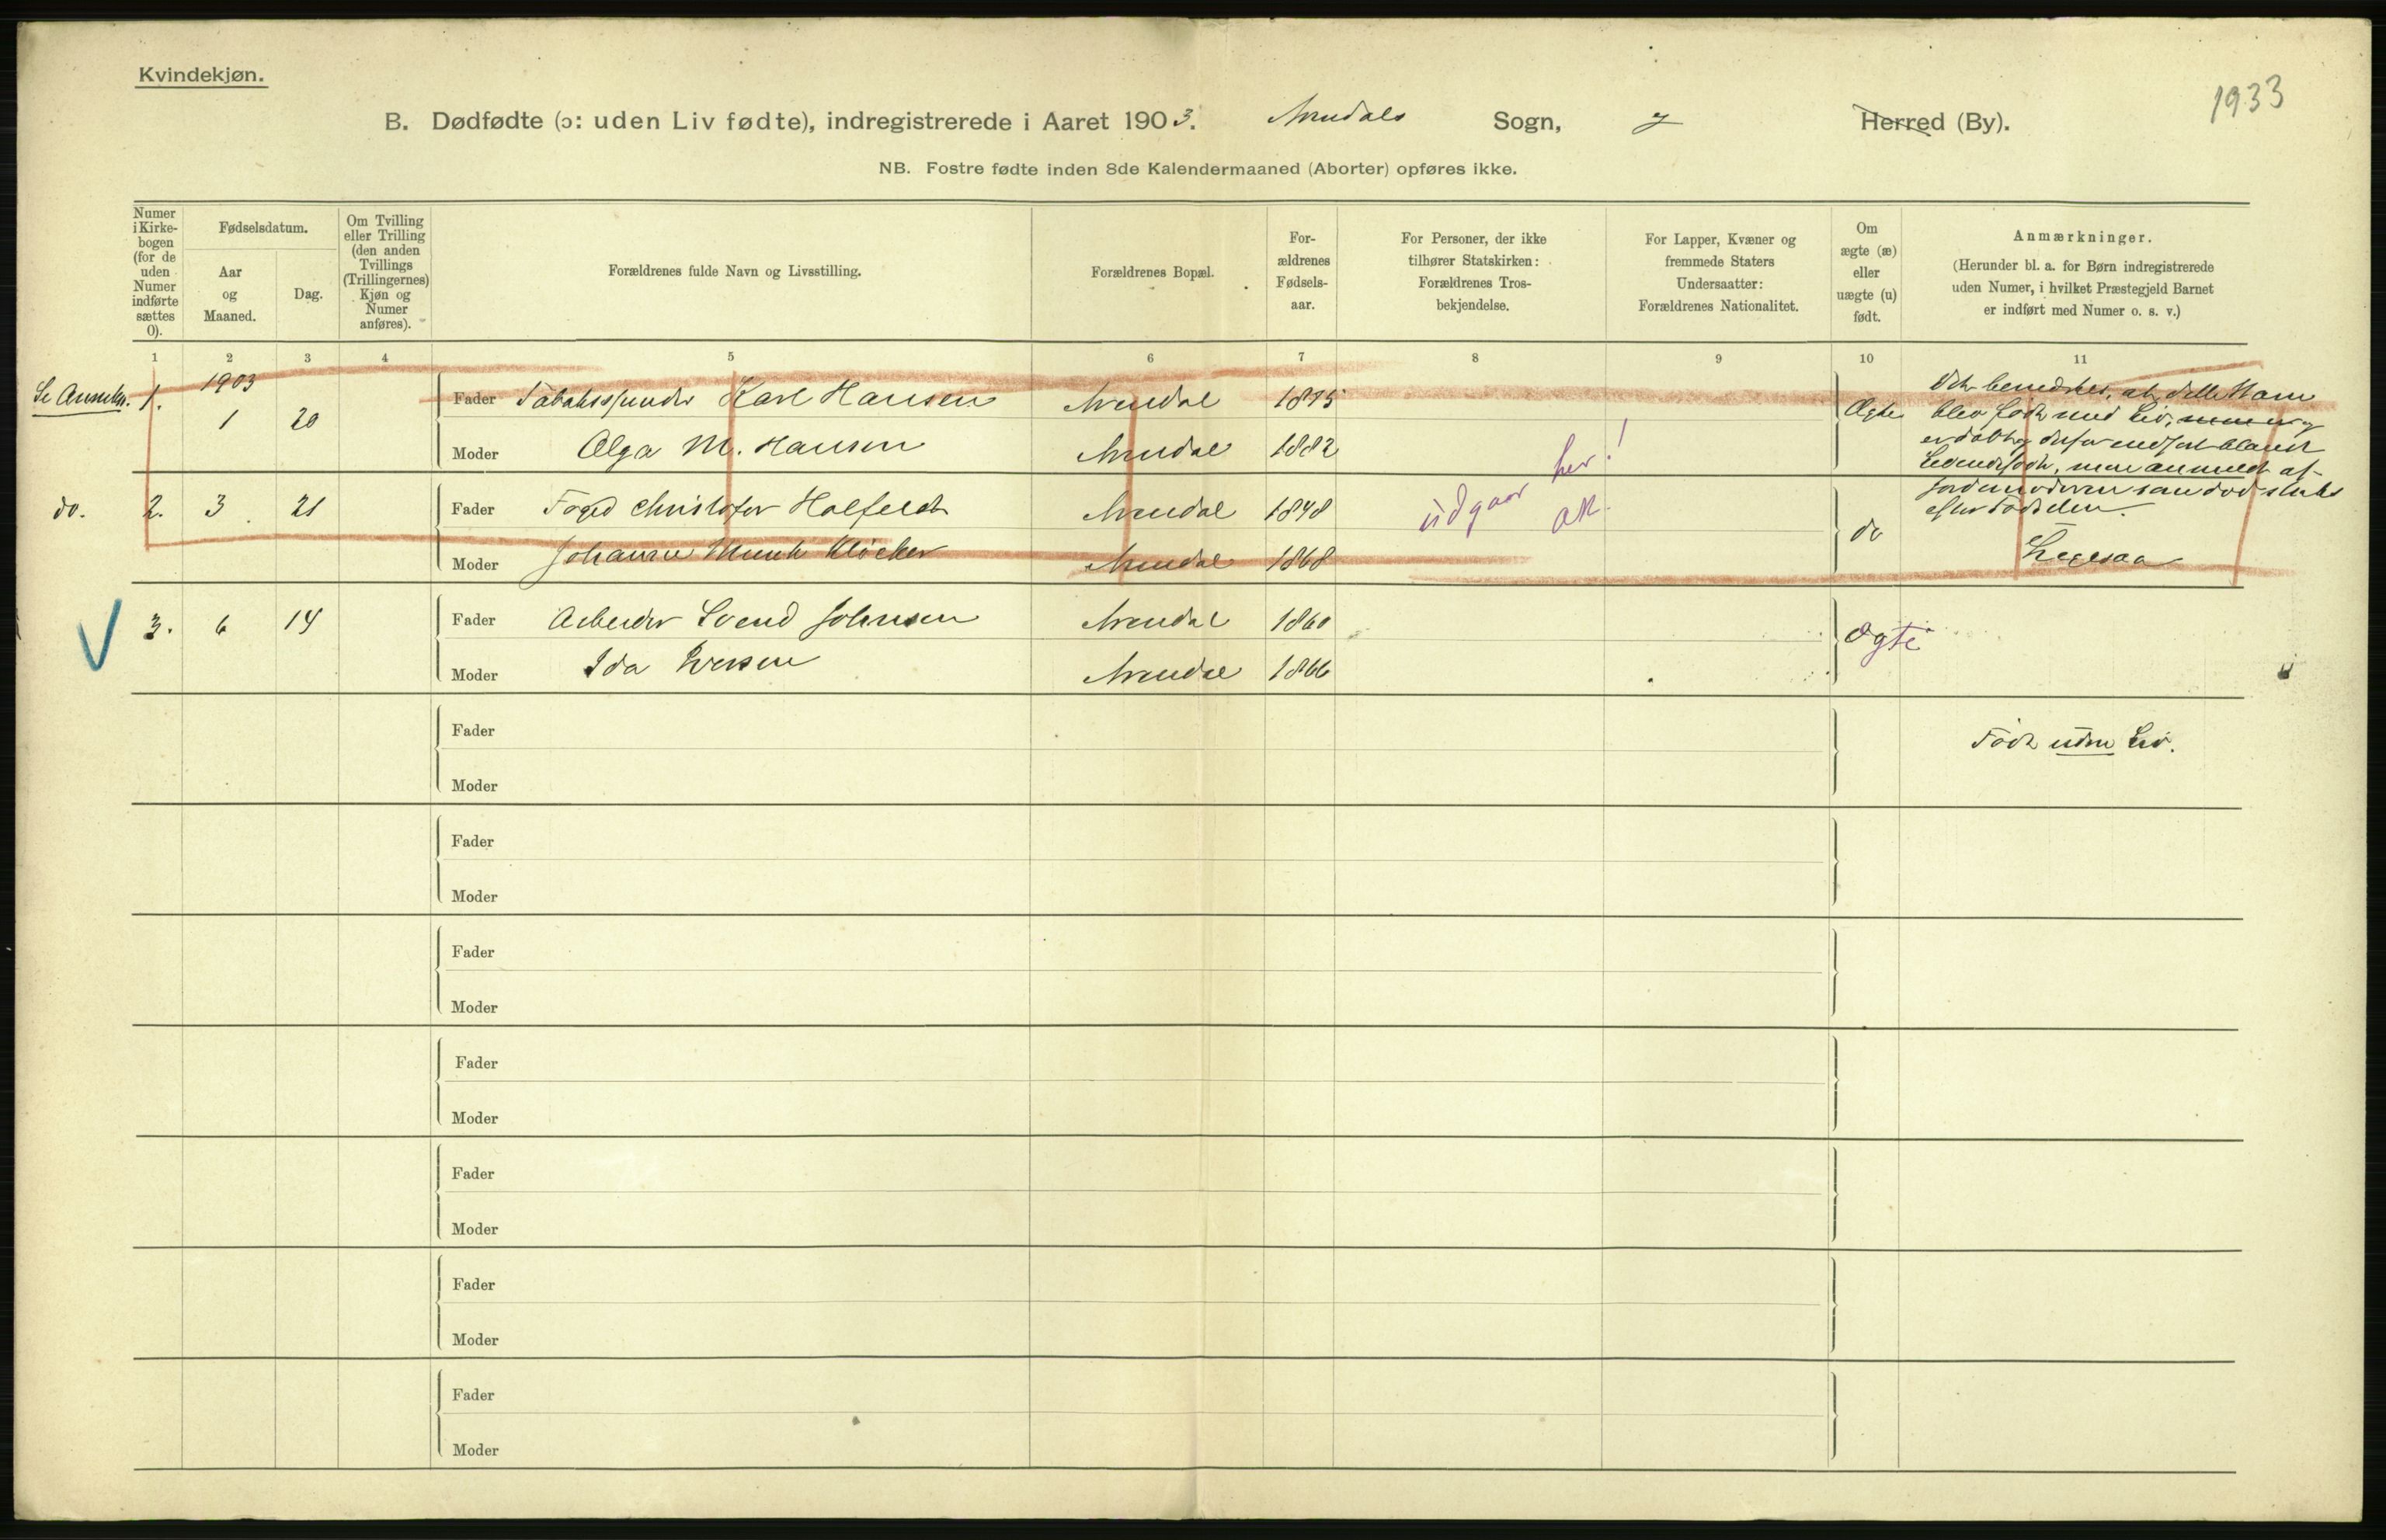 Kvindekjøn.
1933
B. Dødfødte (ɔ: uden Liv fødte), indregistrerede i Aaret 1903. Arendals Sogn, Herred (By).
NB. Fostre fødte inden 8de Kalendermaaned (Aborter) opføres ikke.
Numer i Kirkebogen (for de uden Numer indførte sættes 0).
Fødselsdatum.
Aar og Maaned.
Dag.
Om Tvilling eller Trilling (den anden Tvillings (Trillingernes) Kjøn og Numer anføres).
Forældrenes fulde Navn og Livsstilling.
Forældrenes Bopæl.
For-ældrenes Fødsels-aar.
For Personer, der ikke tilhører Statskirken: Forældrenes Tros-bekjendelse.
For Lapper, Kvæner og fremmede Staters Undersaatter: Forældrenes Nationalitet.
Om ægte (æ) eller uægte (u) født.
Anmærkninger.
(Herunder bl. a. for Børn indregistrerede uden Numer, i hvilket Præstegjeld Barnet er indført med Numer o. s. v.)
1 2 3 4 5 6 7 8 9 10 11
Se Anmekn. 1. 1903 1 20 Fader Karl Hansen Arendal 1875 Ægte
Moder Olga M. Hansen Arendal 1882
Det bemærkes, at dette Barn
blev født med Liv,
er døbt og derfor indført blandt
Levendefødte, men anmeldt af
Jordemoderen som død straks
efter Fødselen.
udgaar her!
do. 2. 3 21 Fader Foged Christofer Holfeldt Arendal 1848 do
Moder Johanne Munk Kløcker Arendal 1868
Ligesaa
3. 6 14 Fader Arbeider Svend Johnsen Arendal 1860 Ægte
Moder Ida Iversen Arendal 1866
Fader Født uden Liv.
Moder
Fader
Moder
Fader
Moder
Fader
Moder
Fader
Moder
Fader
Moder
Fader
Moder